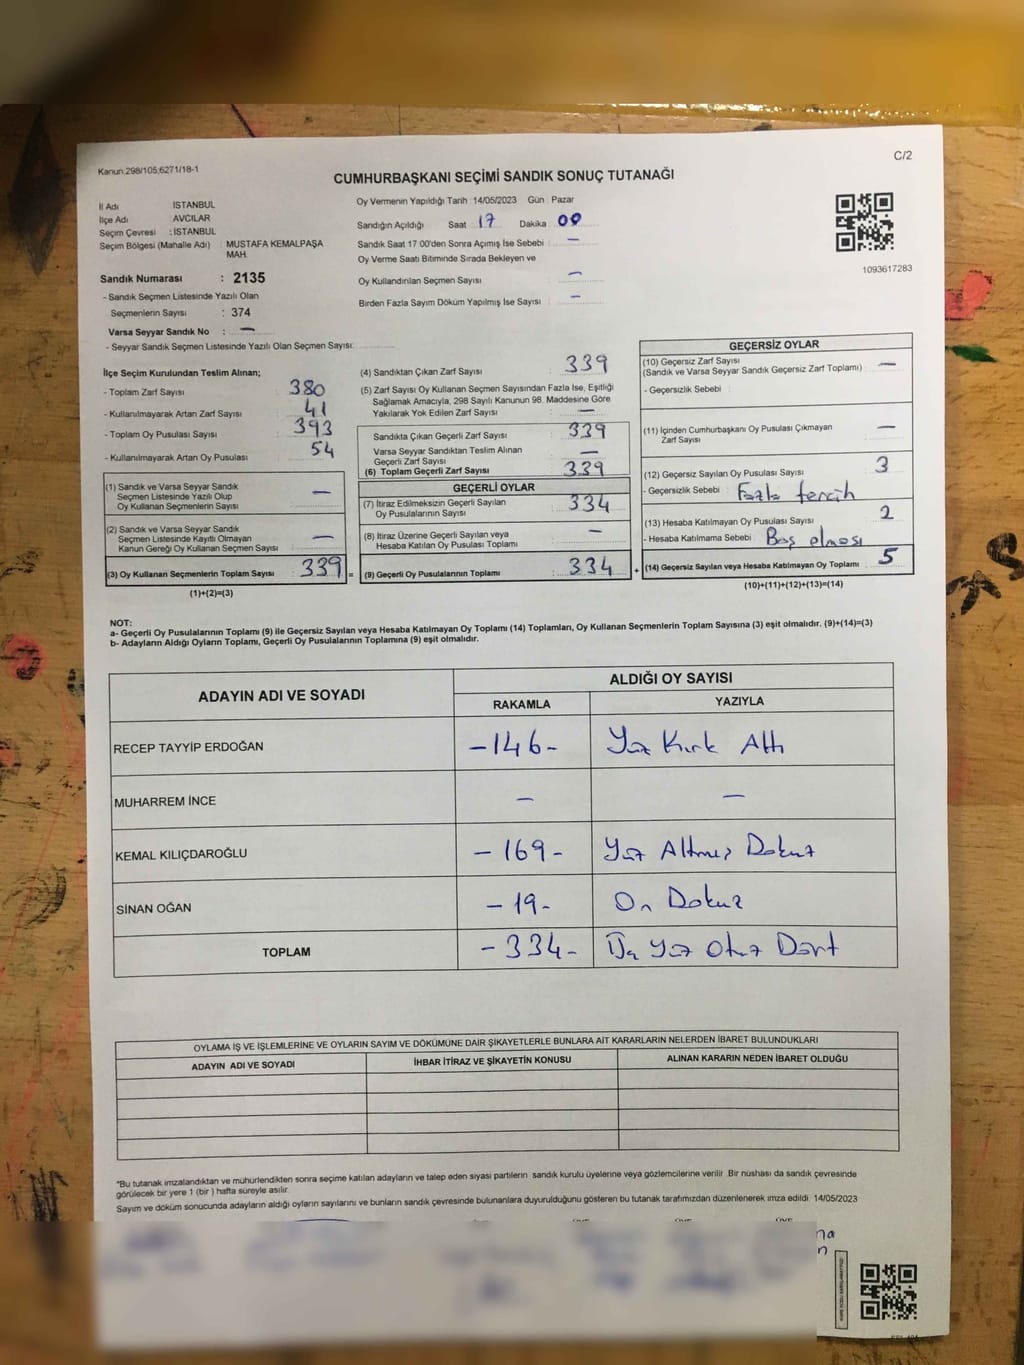 Kanun:298/105;6271/18-1
C/2
CUMHURBAŞKANI SEÇİMİ SANDIK SONUÇ TUTANAĞI
İl Adı İSTANBUL
İlçe Adı AVCILAR
Seçim Çevresi : İSTANBUL
Seçim Bölgesi (Mahalle Adı) : MUSTAFA KEMALPAŞA
MAH.
Sandık Numarası : 2135
- Sandık Seçmen Listesinde Yazılı Olan
Seçmenlerin Sayısı : 374
Varsa Seyyar Sandık No : —
- Seyyar Sandık Seçmen Listesinde Yazılı Olan Seçmen Sayısı:
Oy Vermenin Yapıldığı Tarih :14/05/2023 Gün : Pazar
Sandığın Açıldığı Saat : 17 Dakika : 00
Sandık Saat 17:00'den Sonra Açımış İse Sebebi : —
Oy Verme Saati Bitiminde Sırada Bekleyen ve
Oy Kullandırılan Seçmen Sayısı : —
Birden Fazla Sayım Döküm Yapılmış İse Sayısı : —
1093617283
İlçe Seçim Kurulundan Teslim Alınan;
- Toplam Zarf Sayısı : 380
- Kullanılmayarak Artan Zarf Sayısı : 41
- Toplam Oy Pusulası Sayısı : 393
- Kullanılmayarak Artan Oy Pusulası : 54
(1) Sandık ve Varsa Seyyar Sandık
Seçmen Listesinde Yazılı Olup
Oy Kullanan Seçmenlerin Sayısı : —
(2) Sandık ve Varsa Seyyar Sandık
Seçmen Listesinde Kayıtlı Olmayan
Kanun Gereği Oy Kullanan Seçmen Sayısı : —
(3) Oy Kullanan Seçmenlerin Toplam Sayısı : 339 =
(1)+(2)=(3)
(4) Sandıktan Çıkan Zarf Sayısı : 339
(5) Zarf Sayısı Oy Kullanan Seçmen Sayısından Fazla İse, Eşitliği
Sağlamak Amacıyla, 298 Sayılı Kanunun 98. Maddesine Göre
Yakılarak Yok Edilen Zarf Sayısı : —
Sandıkta Çıkan Geçerli Zarf Sayısı : 339
Varsa Seyyar Sandıktan Teslim Alınan
Geçerli Zarf Sayısı : —
(6) Toplam Geçerli Zarf Sayısı : 339
GEÇERLİ OYLAR
(7) İtiraz Edilmeksizin Geçerli Sayılan
Oy Pusulalarının Sayısı : 334
(8) İtiraz Üzerine Geçerli Sayılan veya
Hesaba Katılan Oy Pusulası Toplamı : —
(9) Geçerli Oy Pusulalarının Toplamı : 334 +
GEÇERSİZ OYLAR
(10) Geçersiz Zarf Sayısı
(Sandık ve Varsa Seyyar Sandık Geçersiz Zarf Toplamı) : —
- Geçersizlik Sebebi :
(11) İçinden Cumhurbaşkanı Oy Pusulası Çıkmayan
Zarf Sayısı : —
(12) Geçersiz Sayılan Oy Pusulası Sayısı : 3
- Geçersizlik Sebebi : Fazla tercih
(13) Hesaba Katılmayan Oy Pusulası Sayısı : 2
- Hesaba Katılmama Sebebi : Boş olması
(14) Geçersiz Sayılan veya Hesaba Katılmayan Oy Toplamı : 5
(10)+(11)+(12)+(13)=(14)
NOT:
a- Geçerli Oy Pusulalarının Toplamı (9) ile Geçersiz Sayılan veya Hesaba Katılmayan Oy Toplamı (14) Toplamları, Oy Kullanan Seçmenlerin Toplam Sayısına (3) eşit olmalıdır. (9)+(14)=(3)
b- Adayların Aldığı Oyların Toplamı, Geçerli Oy Pusulalarının Toplamına (9) eşit olmalıdır.
ADAYIN ADI VE SOYADI ALDIĞI OY SAYISI
RAKAMLA YAZIYLA
RECEP TAYYİP ERDOĞAN -146- Yüz Kırk Altı
MUHARREM İNCE — —
KEMAL KILIÇDAROĞLU -169- Yüz Altmış Dokuz
SİNAN OĞAN -19- On Dokuz
TOPLAM -334- Üç Yüz Otuz Dört
OYLAMA İŞ VE İŞLEMLERİNE VE OYLARIN SAYIM VE DÖKÜMÜNE DAİR ŞİKAYETLERLE BUNLARA AİT KARARLARIN NELERDEN İBARET BULUNDUKLARI
ADAYIN ADI VE SOYADI İHBAR İTİRAZ VE ŞİKAYETİN KONUSU ALINAN KARARIN NEDEN İBARET OLDUĞU
*Bu tutanak imzalandıktan ve mühürlendikten sonra seçime katılan adayların ve talep eden siyasi partilerin sandık kurulu üyelerine veya gözlemcilerine verilir. Bir nüshası da sandık çevresinde
görülecek bir yere 1 (bir) hafta süreyle asılır.
Sayım ve döküm sonucunda adayların aldığı oyların sayılarını ve bunların sandık çevresinde bulunanlara duyurulduğunu gösteren bu tutanak tarafımızdan düzenlenerek imza edildi. 14/05/2023